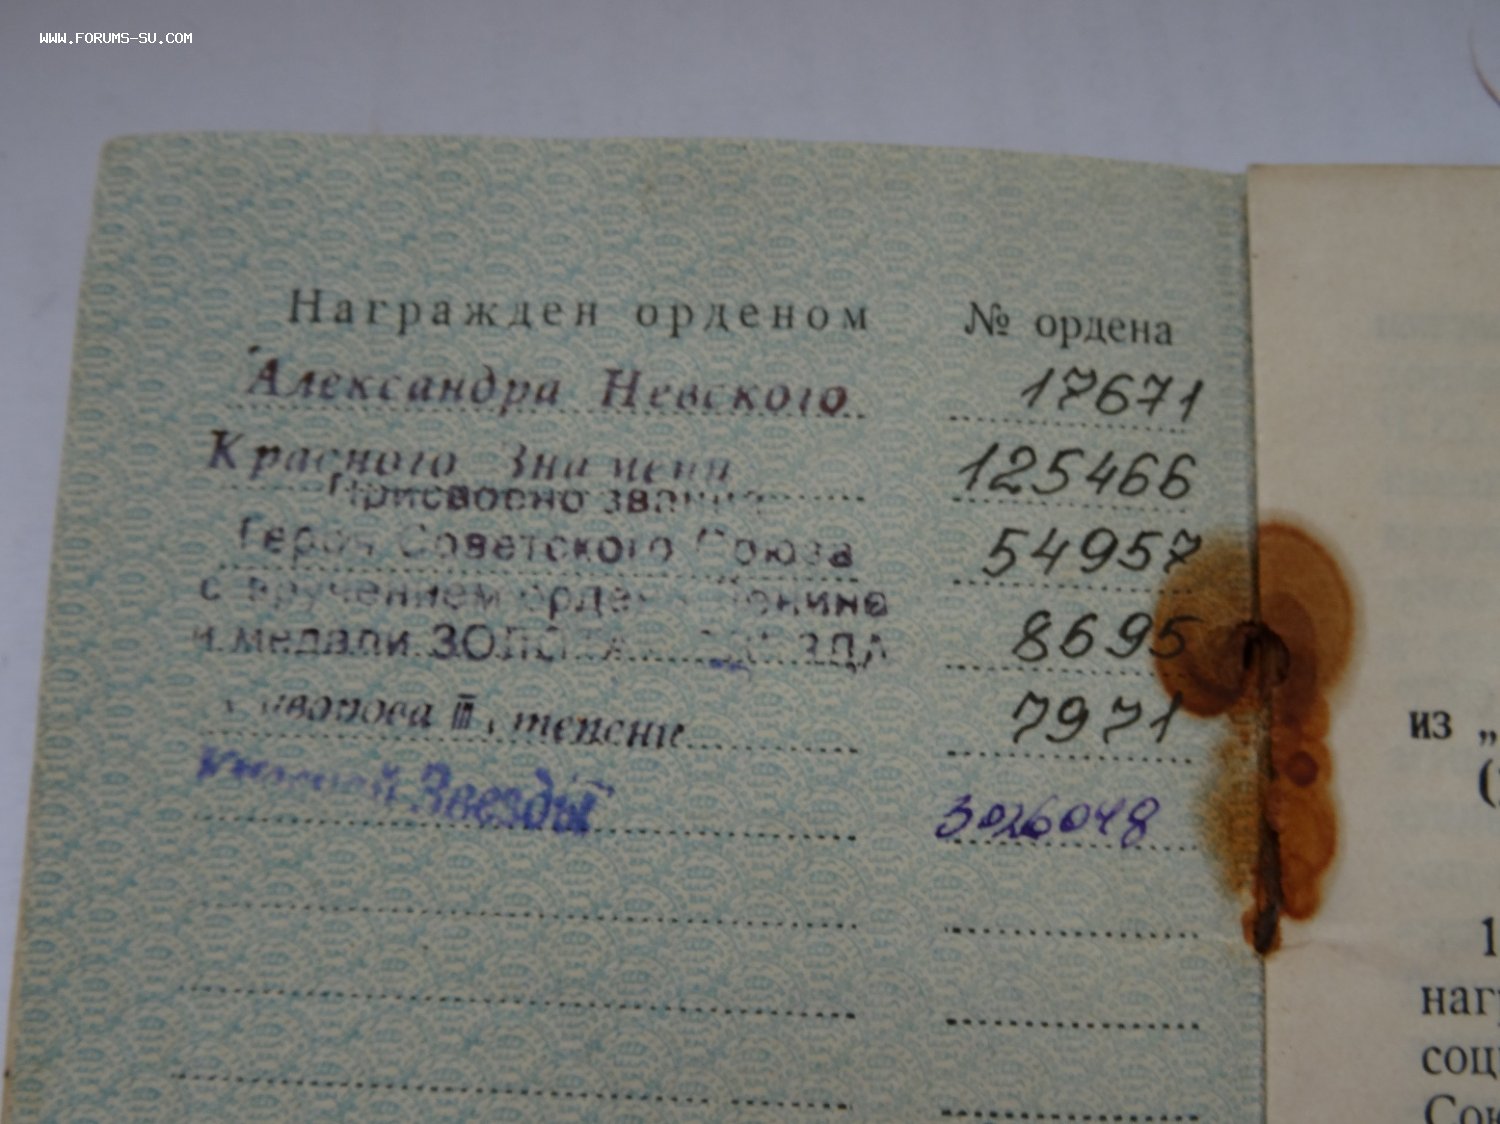 WWW.FORUMS-SU.COM
Награжден орденом № ордена
Александра Невского 17671
Красного Знамени 125466
Присвоено звание
Героя Советского Союза 54957
с вручением ордена Ленина
и медали ЗОЛОТАЯ ЗВЕЗДА 8695
Суворова III степени 7971
Красной Звезды 3026048
из „
(
1
наг
соц
Сою